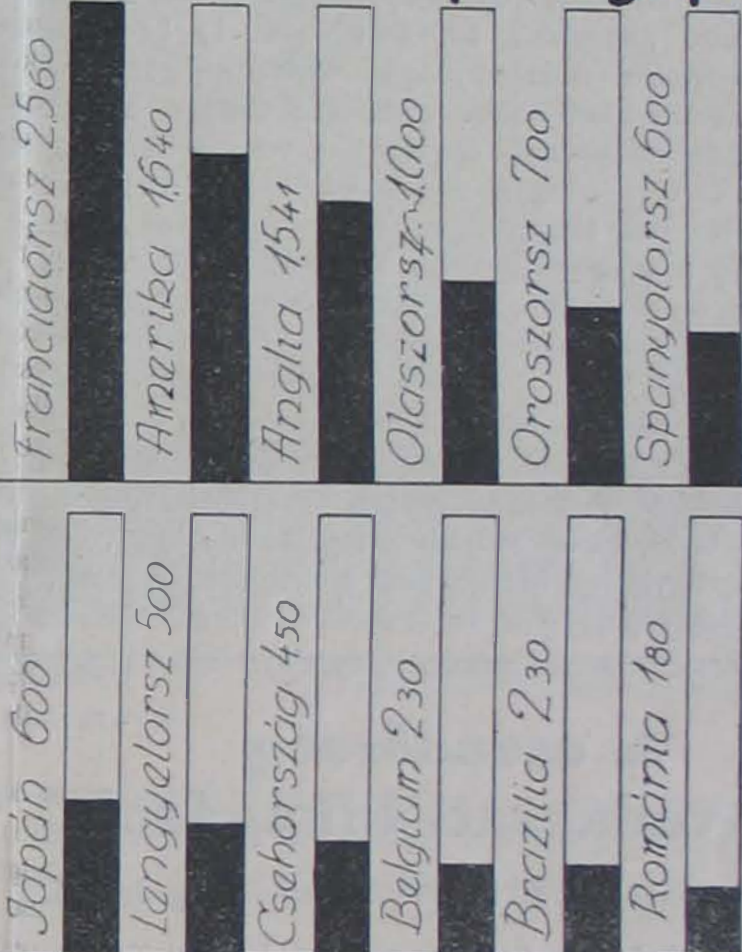 Franciaorsz 2.560
Amerika 1.640
Anglia 1.541
Olaszorsz. 1.000
Oroszorsz 700
Spanyolorsz. 600
Japán 600
Lengyelorsz 500
Csehország 450
Belgium 230
Brazilia 230
Románia 180